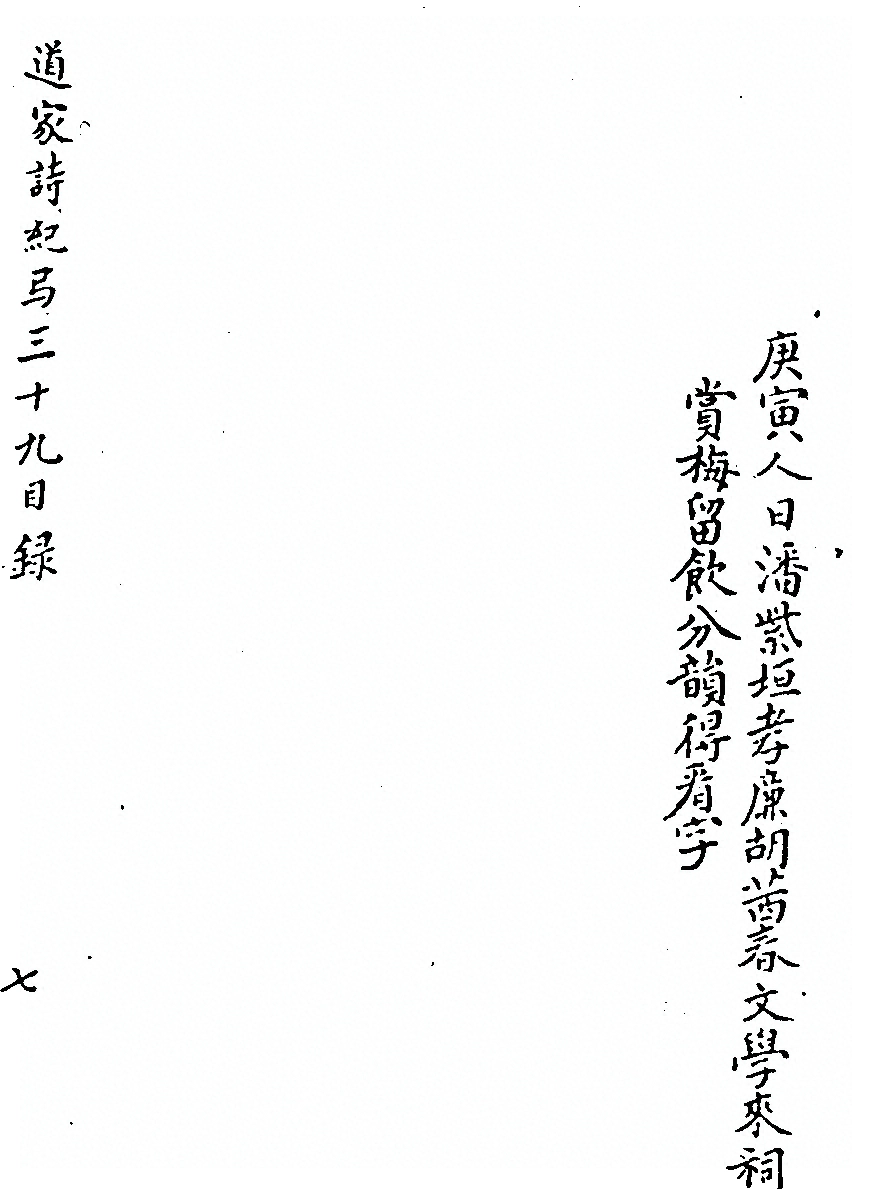 庚寅人日潘紫垣孝廉胡茜春文學來祠
賞梅留飲分韻得看字
道家詩紀弓三十九目録
七